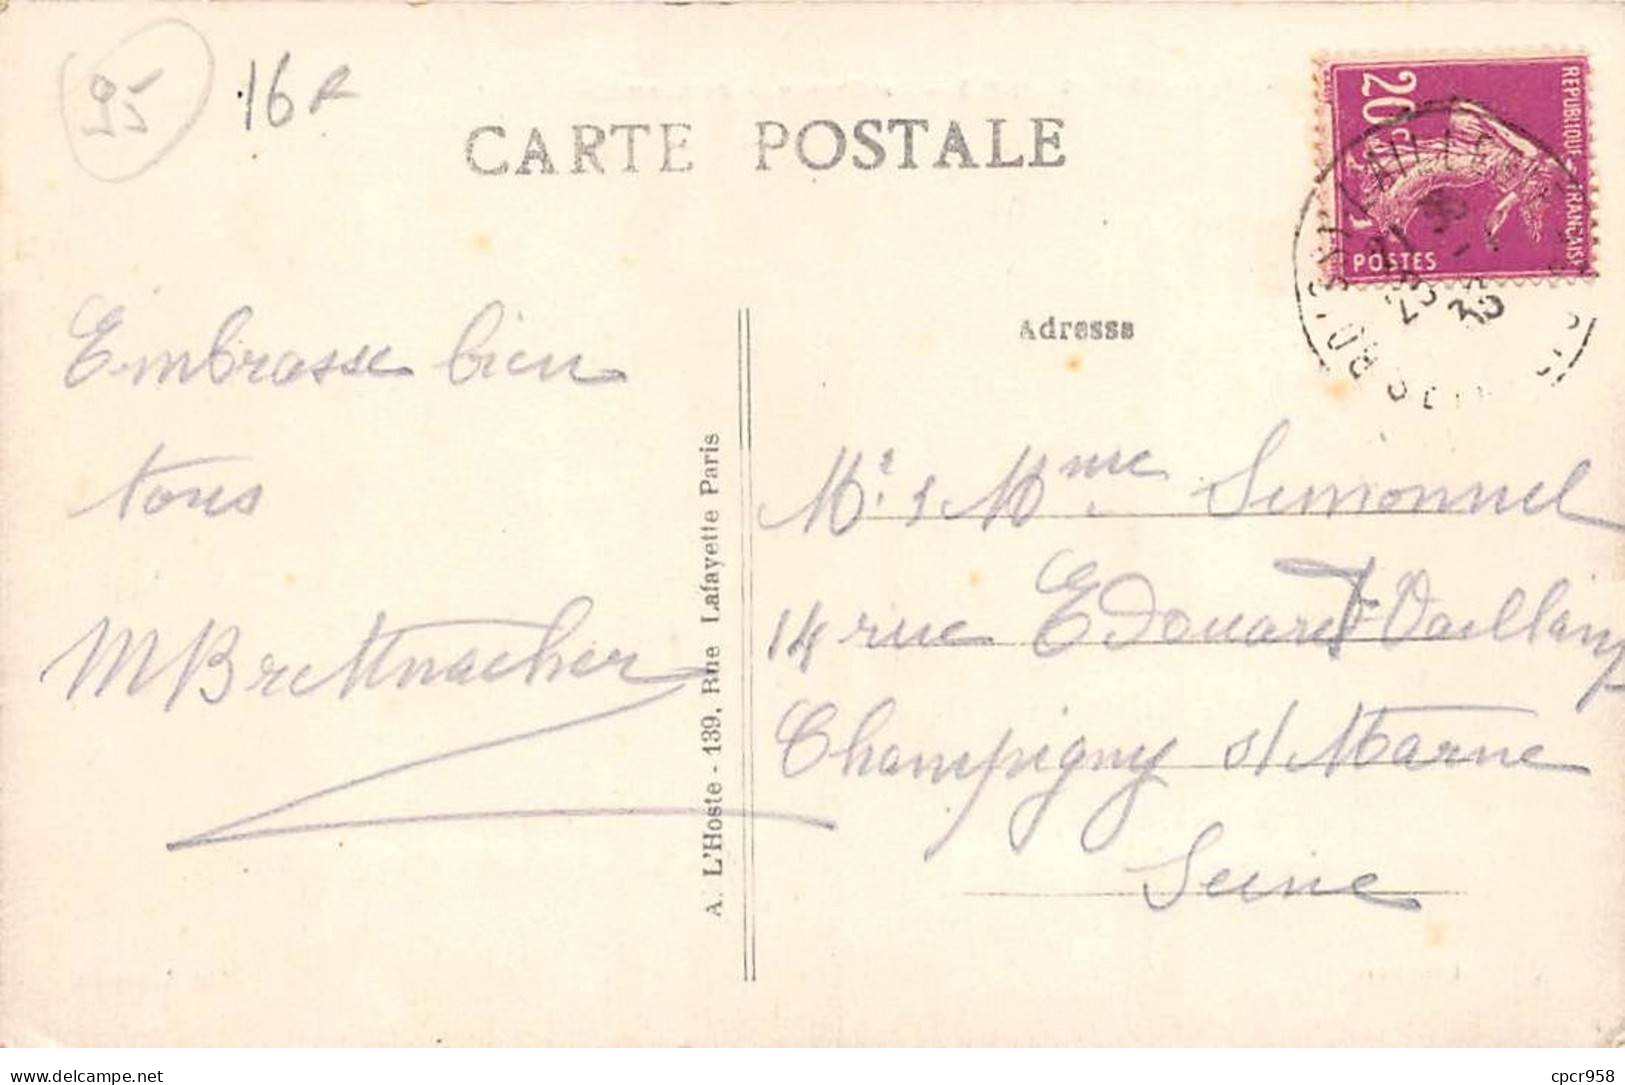 95 16
CARTE POSTALE
20c.
REPUBLIQUE FRANÇAISE
POSTES
Adresse
Embrasse bien
tous
M Brettnacher
A. L'Hoste - 139, Rue Lafayette Paris
Mr. & Mme Simonnel
14 rue Edouard Vaillant
Champigny s/ Marne
Seine
cpcr958